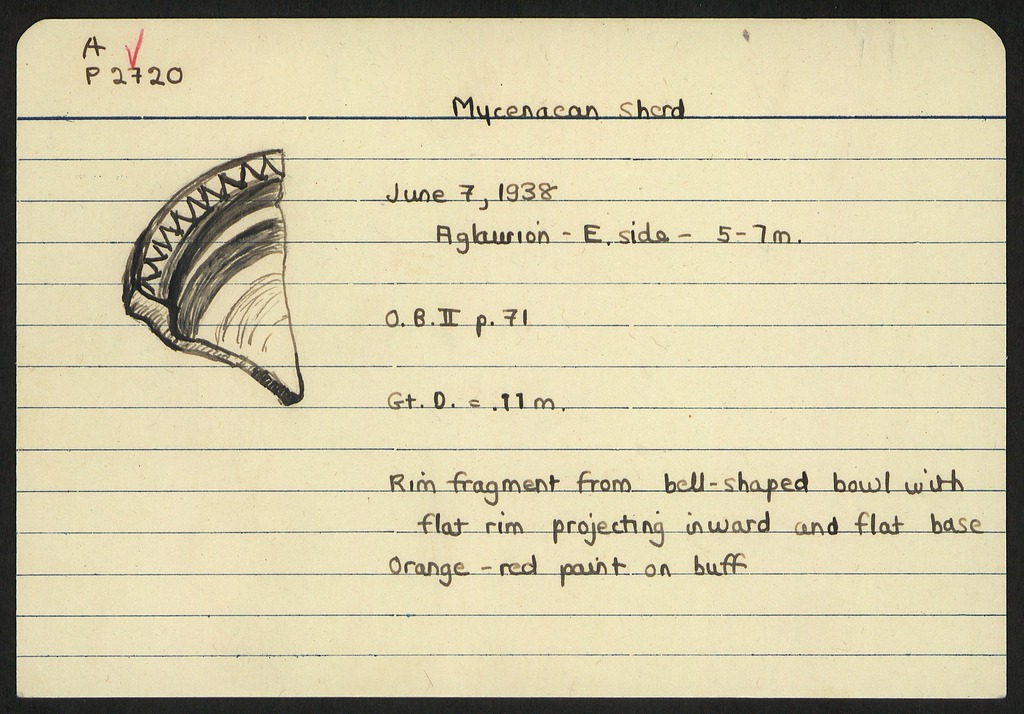 A
P 2720
Mycenaean Sherd
June 7, 1938
Aglaurion - E. side - 5-7m.
O.B.II p. 71
Gt. D. = .11m.
Rim fragment from bell-shaped bowl with
flat rim projecting inward and flat base
Orange-red paint on buff